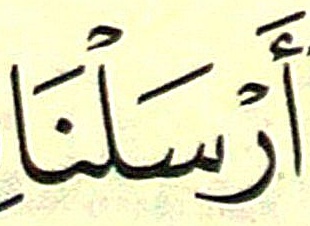 أَرْسَلْنَا